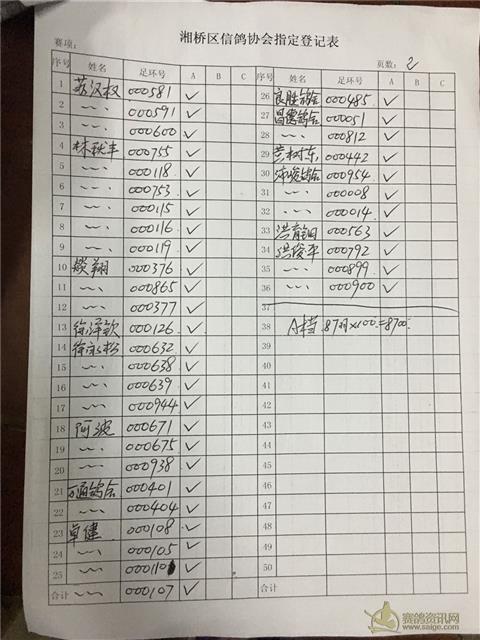 湘桥区信鸽协会指定登记表
赛项: 页数: 2
序号 姓名 足环号 A B C 序号 姓名 足环号 A B C
1 苏汉权 000581 ✓ 26 良胜鸽舍 000485 ✓
2 〃 000591 ✓ 27 昌德鸽舍 000051 ✓
3 〃 000600 ✓ 28 〃 000812 ✓
4 林秋丰 000755 ✓ 29 树东 000442 ✓
5 〃 000118 ✓ 30 鸽舍 000954 ✓
6 〃 000753 ✓ 31 〃 000008 ✓
7 〃 000115 ✓ 32 〃 000014 ✓
8 〃 000116 ✓ 33 洪育钿 000563 ✓
9 〃 000119 ✓ 34 洪俊平 000792 ✓
10 翔 000376 ✓ 35 〃 000899 ✓
11 〃 000865 ✓ 36 〃 000900 ✓
12 〃 000377 ✓ 37
13 徐泽钦 000126 ✓ 38 A档 87羽×100=8700
14 徐永松 000632 ✓ 39
15 〃 000638 ✓ 40
16 〃 000639 ✓ 41
17 〃 000944 ✓ 42
18 阿波 000671 ✓ 43
19 〃 000675 ✓ 44
20 〃 000938 ✓ 45
21 鸽舍 000401 ✓ 46
22 〃 000404 ✓ 47
23 卓健 000108 ✓ 48
24 〃 000105 ✓ 49
25 〃 000110 ✓ 50
合计 〃 000107 ✓ 合计
赛鸽资讯网
www.saige.com